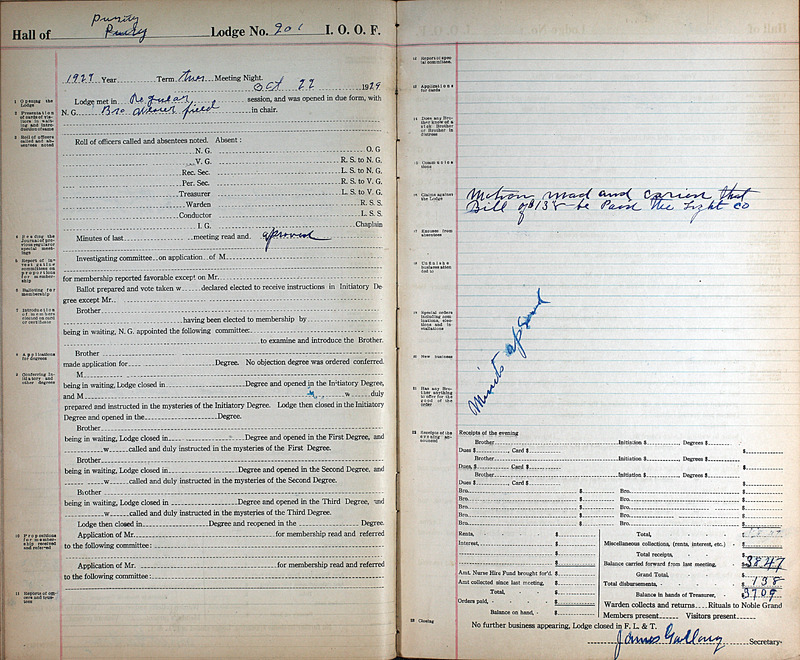 Purity
Hall of Purity Lodge No. 201 I. O. O. F.
1929 Year Term two Meeting Night.
Oct 22 1929
1 Opening the Lodge
Lodge met in Regular session, and was opened in due form, with
N. G. Bro in chair.
2 Presentation of cards of visitors in waiting and introduction of same
3 Roll of officers called and absentees noted
Roll of officers called and absentees noted. Absent:
N. G. O. G
V. G. R. S. to N. G.
Rec. Sec. L. S. to N. G.
Per. Sec. R. S. to V. G.
Treasurer L. S. to V. G.
Warden R. S. S.
Conductor L. S. S.
I. G. Chaplain
4 Reading the Journal of previous regular or special meetings
Minutes of last meeting read and aproved
5 Report of investigating committees on propositions for membership
Investigating committee on application of M
for membership reported favorable except on Mr.
6 Balloting for membership
Ballot prepared and vote taken w declared elected to receive instructions in Initiatory De
gree except Mr.
7 Introduction of members elected on card or certificate
Brother
having been elected to membership by
being in waiting, N. G. appointed the following committee:
to examine and introduce the Brother.
8 Applications for degrees
Brother
made application for Degree. No objection degree was ordered conferred.
9 Conferring Initiatory and other degrees
M
being in waiting, Lodge closed in Degree and opened in the Initiatory Degree,
and M w duly
prepared and instructed in the mysteries of the Initiatory Degree. Lodge then closed in the Initiatory
Degree and opened in the Degree.
Brother
being in waiting, Lodge closed in Degree and opened in the First Degree, and
w called and duly instructed in the mysteries of the First Degree.
Brother
being in waiting, Lodge closed in Degree and opened in the Second Degree, and
w called and duly instructed in the mysteries of the Second Degree.
Brother
being in waiting, Lodge closed in Degree and opened in the Third Degree, and
w called and duly instructed in the mysteries of the Third Degree.
Lodge then closed in Degree and reopened in the Degree.
10 Propositions for membership received and referred
Application of Mr. for membership read and referred
to the following committee:
Application of Mr. for membership read and referred
to the following committee:
11 Reports of officers and trustees
12 Report of special committees.
13 Applications for cards
14 Does any Brother know of a sick Brother or Brother in distress
15 Communications
16 Claims against the Lodge
Motion mad and caried that
Bill of $138 be Paid the Light co
17 Excuses from absentees
18 Unfinished business attended to
19 Special orders including nominations, elections and installations
Minits aproved
20 New business
21 Has any Brother anything to offer for the good of the order
22 Receipts of the evening announced
Receipts of the evening
Brother Initiation $ Degrees $
Dues $ , Card $ $
Brother Initiation $ Degrees $
Dues, $ Card $ $
Brother Initiation $ Degrees $
Dues $ , Card $ $
Bro. $ Bro. $
Bro. $ Bro. $
Bro. $ Bro. $
Bro. $ Bro. $
Bro. $ Bro. $
Rents, $ Total, $
Interest, $ Miscellaneous collections, (rents, interest, etc.) $
$ Total receipts, $
$ Balance carried forward from last meeting, $ 3847
Amt. Nurse Hire Fund brought for'd. $ Grand Total, $
Amt collected since last meeting, $ Total disbursements, $ 138
Total, $ Balance in hands of Treasurer, $ 3709
Orders paid, $ Warden collects and returns Rituals to Noble Grand
Balance on hand, $ Members present Visitors present
23 Closing
No further business appearing, Lodge closed in F. L. & T.
James Secretary